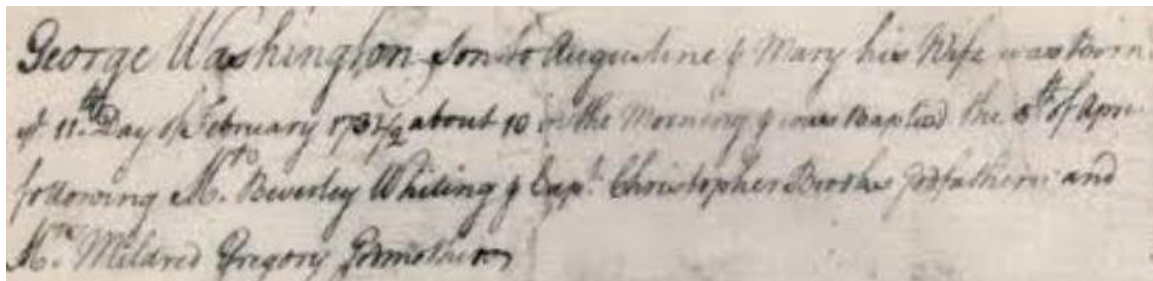 George Washington Son to Augustine & Mary his Wife was Born
yᵉ 11th Day of February 1731/2 about 10 in the Morning & was Baptized the 5th of April
following Mr. Beverley Whiting & Capt. Christopher Brooks Godfathers and
Mrs. Mildred Gregory Godmother